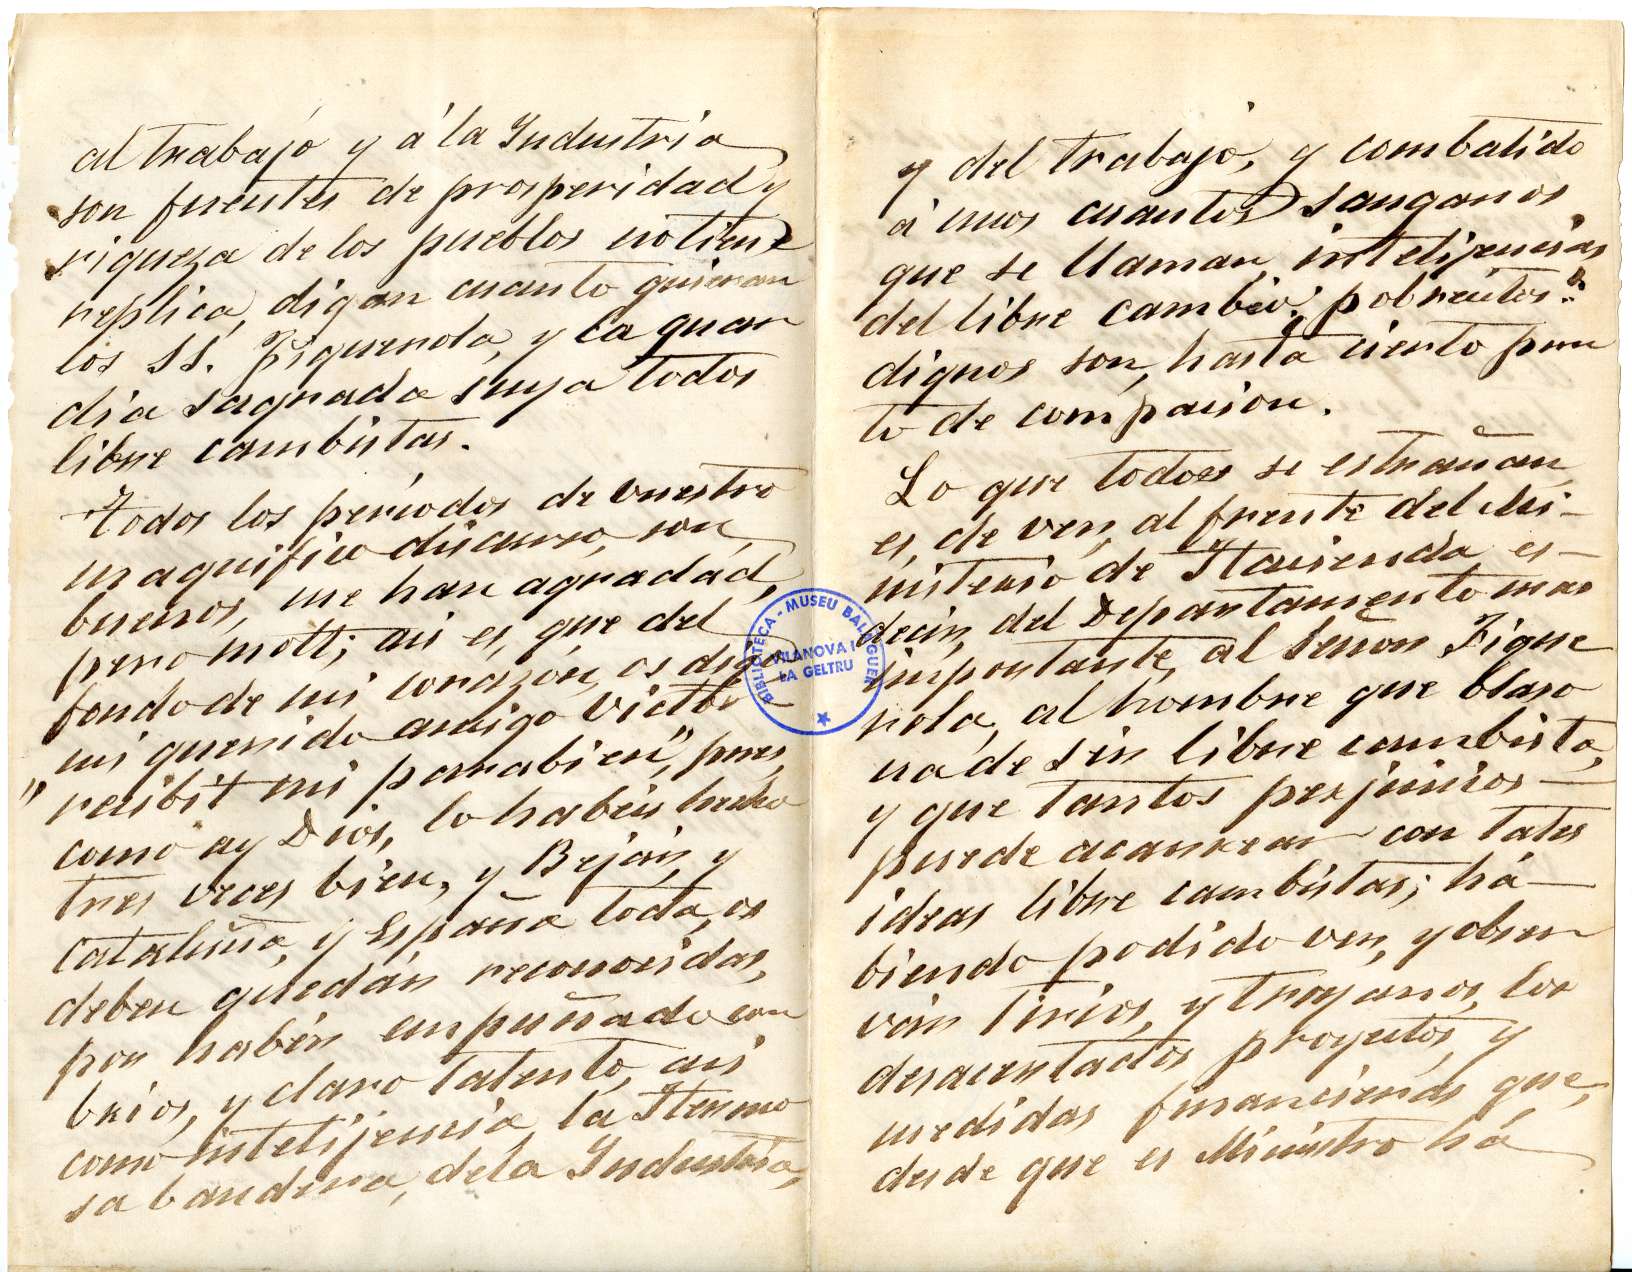 al trabajo y á la Industria
son fuentes de prosperidad y
riqueza de los pueblos no tiene
replica, digan cuanto quieran
los SS. Figuerola, y la guar
dia sagrada suya todos
libre cambistas.
Todos los periodos de vuestro
magnifico discurso, son
buenos, me han agradád,
pero molt; asi es, que del
fondo de mi corazón, os digo
mi querido amigo Victor
"recibit mi parabien", pues,
como ay Dios, lo habéis hecho
tres veces bien, y Bejár, y
Cataluña, y España toda, os
deben quedár reconocidas,
por habér empuñado con
brios, y claro talento, asi
como intelijencia la Hermo
sa bandera, dela Industria,
y del trabajo, y combatido
á unos cuantos sanganos
que se llaman, intelijencias
del libre cambio; pobrecitos!!
dignos son, hasta cierto pun
to de compasion.
Lo que todos se estrañan,
es, de ver, al frente del Mi-
nisterio de Hacienda es-
decir, del Departamento mas
importante, al Señor Figue
rola, al hombre que blaso
na de sér libre cambista,
y que tantos perjuicios
puede acarrear con tales
ideas libre cambistas; há-
biendo podido ver, y obser
vár tirios, y troyanos, los
desacertados proyectos, y
medidas financieras que,
desde que es Ministro há
BIBLIOTECA - MUSEU BALAGUER
VILANOVA I
LA GELTRU